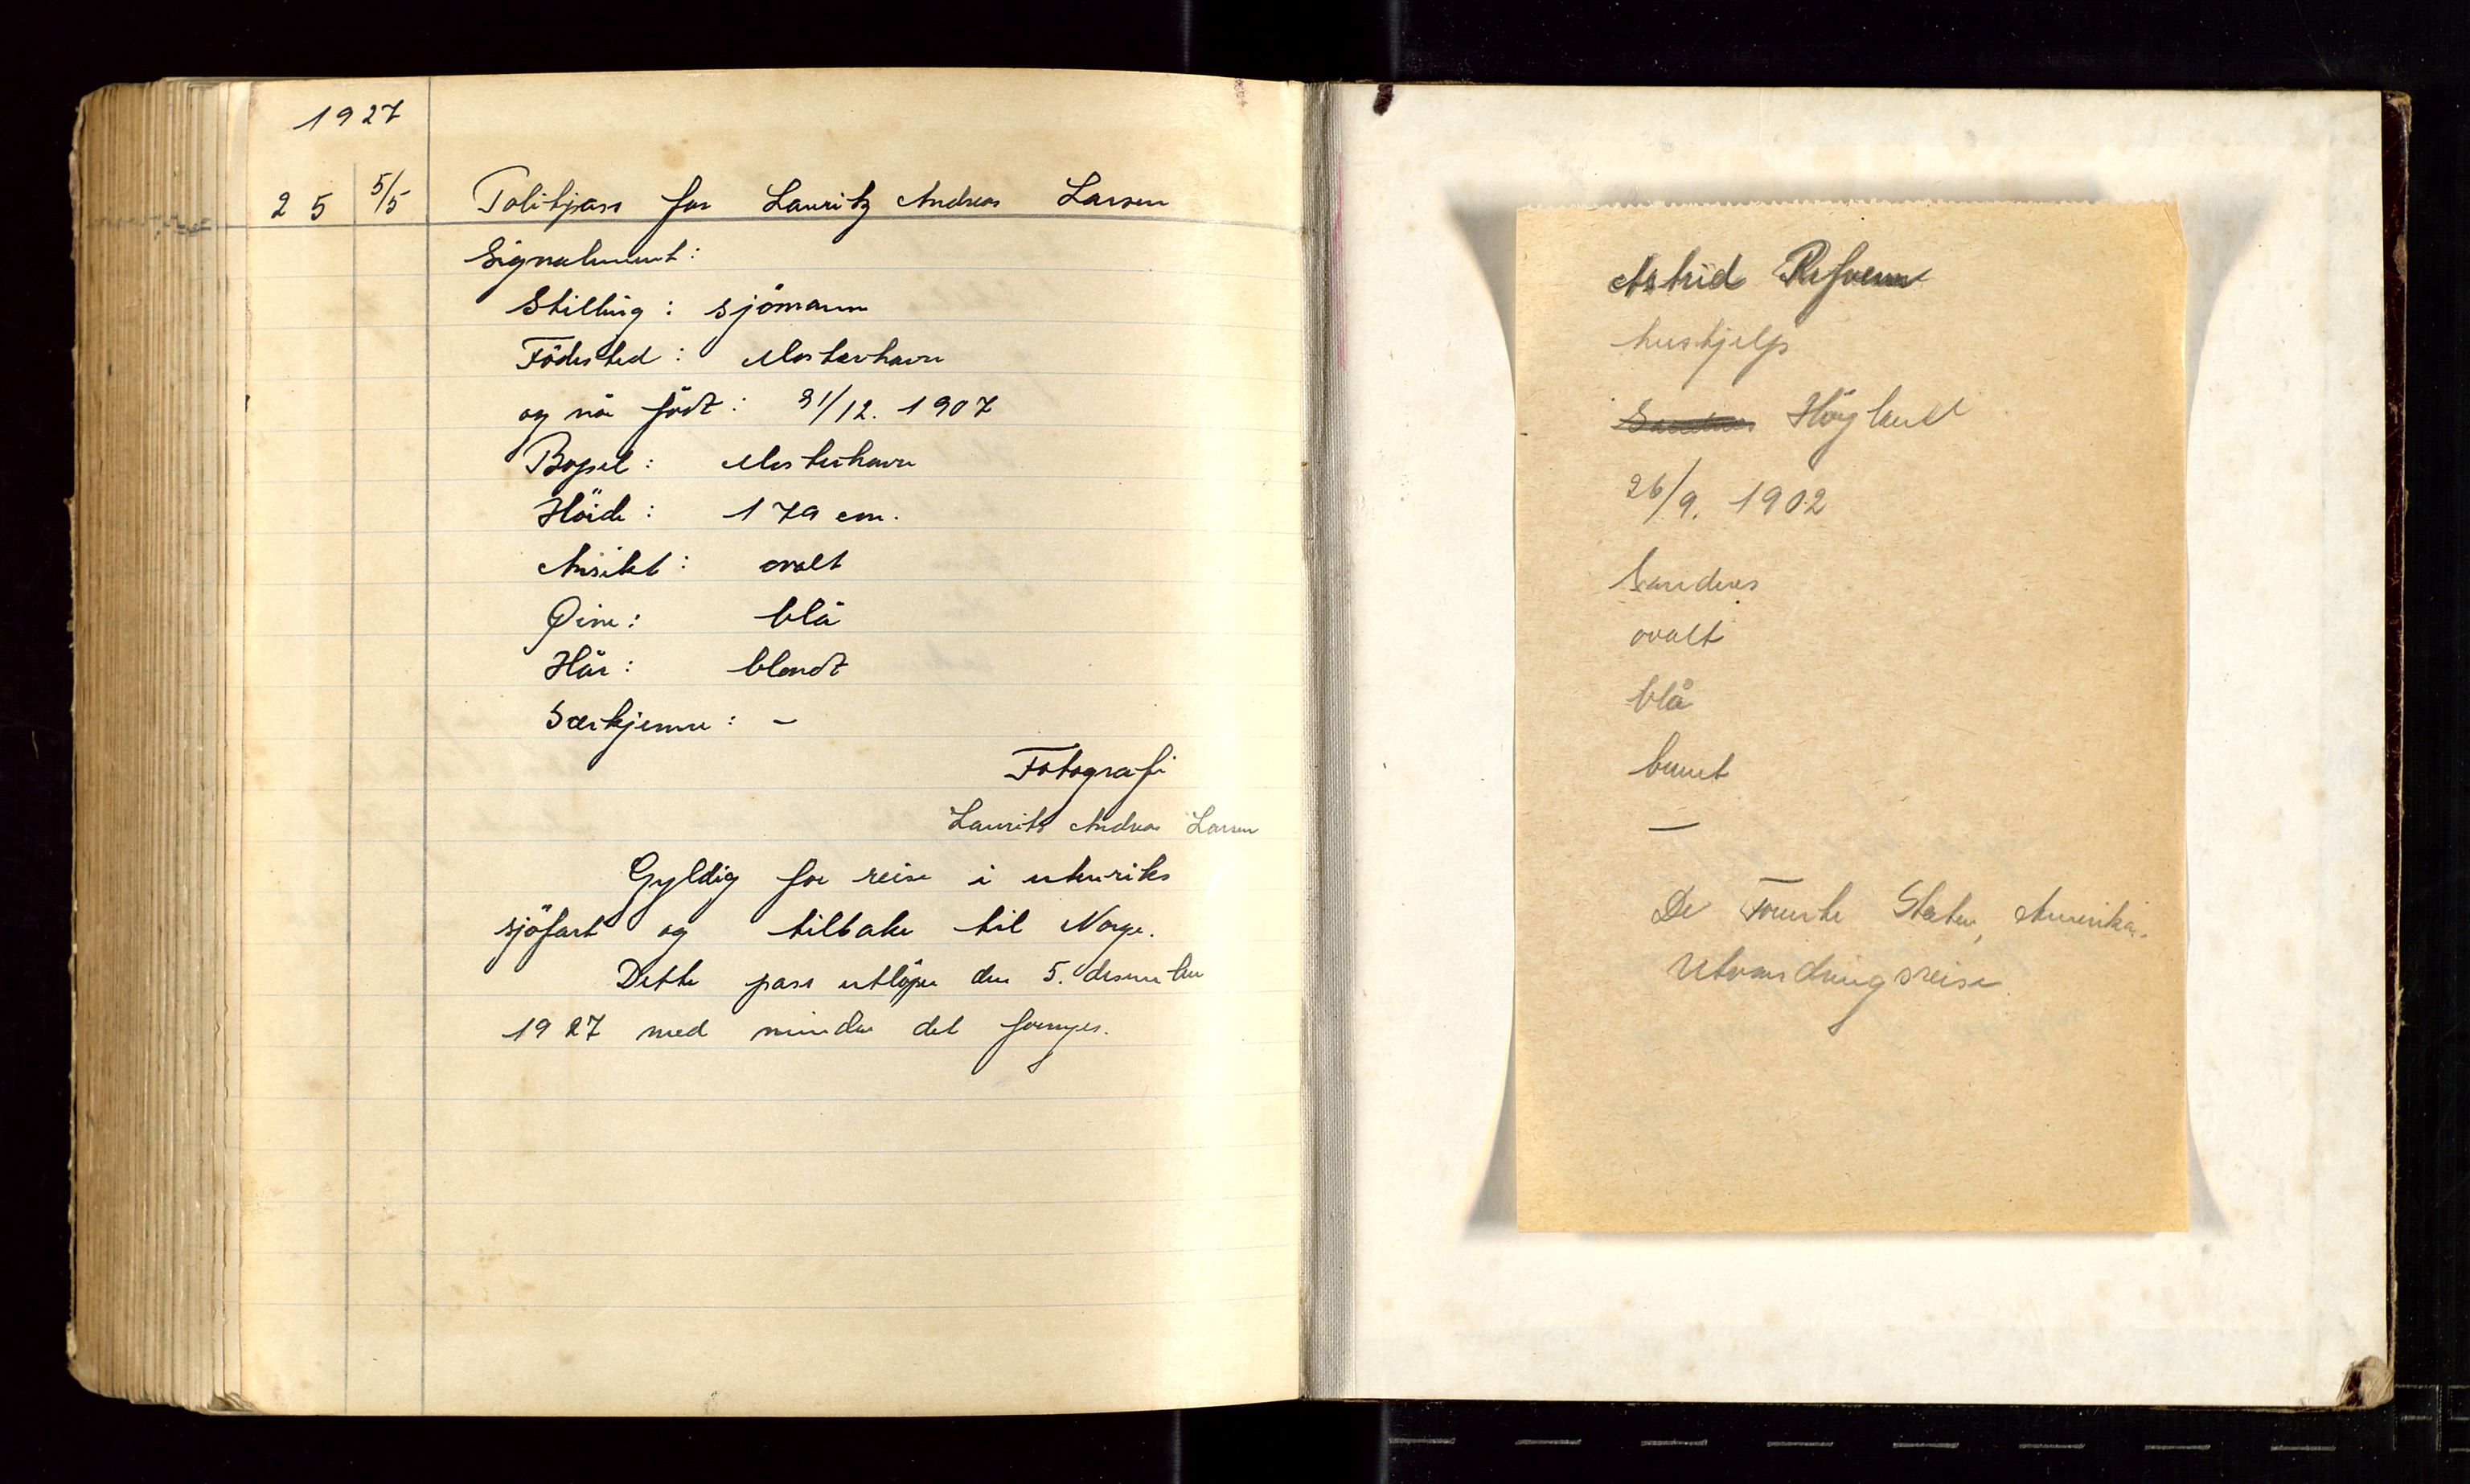 1927
25 5/5 Politipass for Lauritz Andreas Larsen
Signalement:
Stilling: sjömann
Födested: Mosterhavn
og når födt: 31/12. 1907
Bopel: Mosterhavn
Höide: 179 cm.
Ansikt: ovalt
Øine: blå
Hår: blondt
Særkjenne: –
Fotografi
Laurits Andreas Larsen
Gyldig for reise i utenriks
sjöfart og tilbake til Norge.
Dette pass utlöper den 5. desember
1927 med mindre det fornyes.
Astrid
hushjelp
Sandnes Höyland
26/9. 1902
Sandnes
ovalt
blå
brunt
—
De Forente Stater, Amerika.
Utvandringsreise.